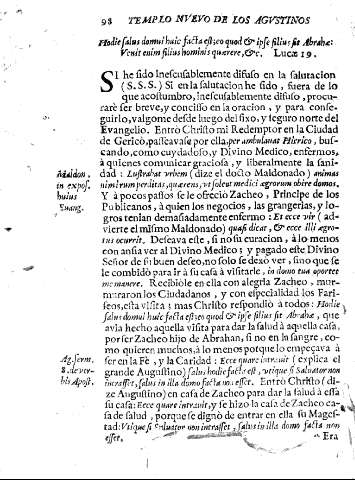 98 TEMPLO NVEVO DE LOS AGVSTINOS
Hodie salus domui huic facta est; eo quod & ipse filius sit Abrahæ:
Venit enim filius hominis quærere, &c. Lucæ 19.
SI he sido inescusablemente difuso en la salutacion
(S.S.S.) Si en la salutacion he sido, fuera de lo
que acostumbro, inescusablemente difuso, procu-
rarè ser breve, y conciso en la oracion, y para conse-
guirlo, valgome desde luego del fixo, y seguro norte del
Evangelio. Entrò Christo mi Redemptor en la Ciudad
de Gericò, passeavase por ella, per ambulavat Hierico, bus-
cando, como cuydadoso, y Divino Medico, enfermos,
à quienes comunicar graciosa, y liberalmente la sani-
dad: Lustrabat vrbem (dize el docto Maldonado) animas
nimirum perditas, quærens, vt solent medici ægrorum obire domos.
Maldon.
in expos.
huius
Euang.
Y à pocos passos se le ofreciò Zacheo, Principe de los
Publicanos, à quien los negocios, las grangerias, y lo-
gros tenian demasiadamente enfermo: Et ecce vir (ad-
vierte el mismo Maldonado) quasi dicat, & ecce illi ægro-
tus ocurrit. Deseava este, si no su curacion, à lo menos
con ansia ver al Divino Medico: y pagado este Divino
Señor de su buen deseo, no solo se dexò ver, sino que se
le combidò para ir à su casa à visitarle, in domo tua oportet
me manere. Recibiòle en ella con alegria Zacheo, mur-
muraron los Ciudadanos, y con especialidad los Fari-
seos, esta visita: mas Christo respondiò à todos: Hodie
salus domui huic facta est; eo quod & ipse filius sit Abrahæ, que
avia hecho aquella visita para dar la salud à aquella casa,
por ser Zacheo hijo de Abrahan, si no en la sangre, co-
mo quieren muchos, à lo menos porque lo empeçava à
ser en la Fè, y la Caridad: Ecce quare intravit (explica el
grande Augustino) salus hodie facta est, vtique si Salvator non
intrasset, salus in illa domo facta non esset. Entrò Christo (di-
Ag. serm.
8. de ver-
bis Apost.
ze Augustino) en casa de Zacheo para dar la salud à essa
su casa: Ecce quare intravit, y se hizo la casa de Zacheo ca-
sa de salud, porque se dignò de entrar en ella su Mages-
tad: Vtique si Saluator non intrasset, salus in illa domo facta non
esset. Era